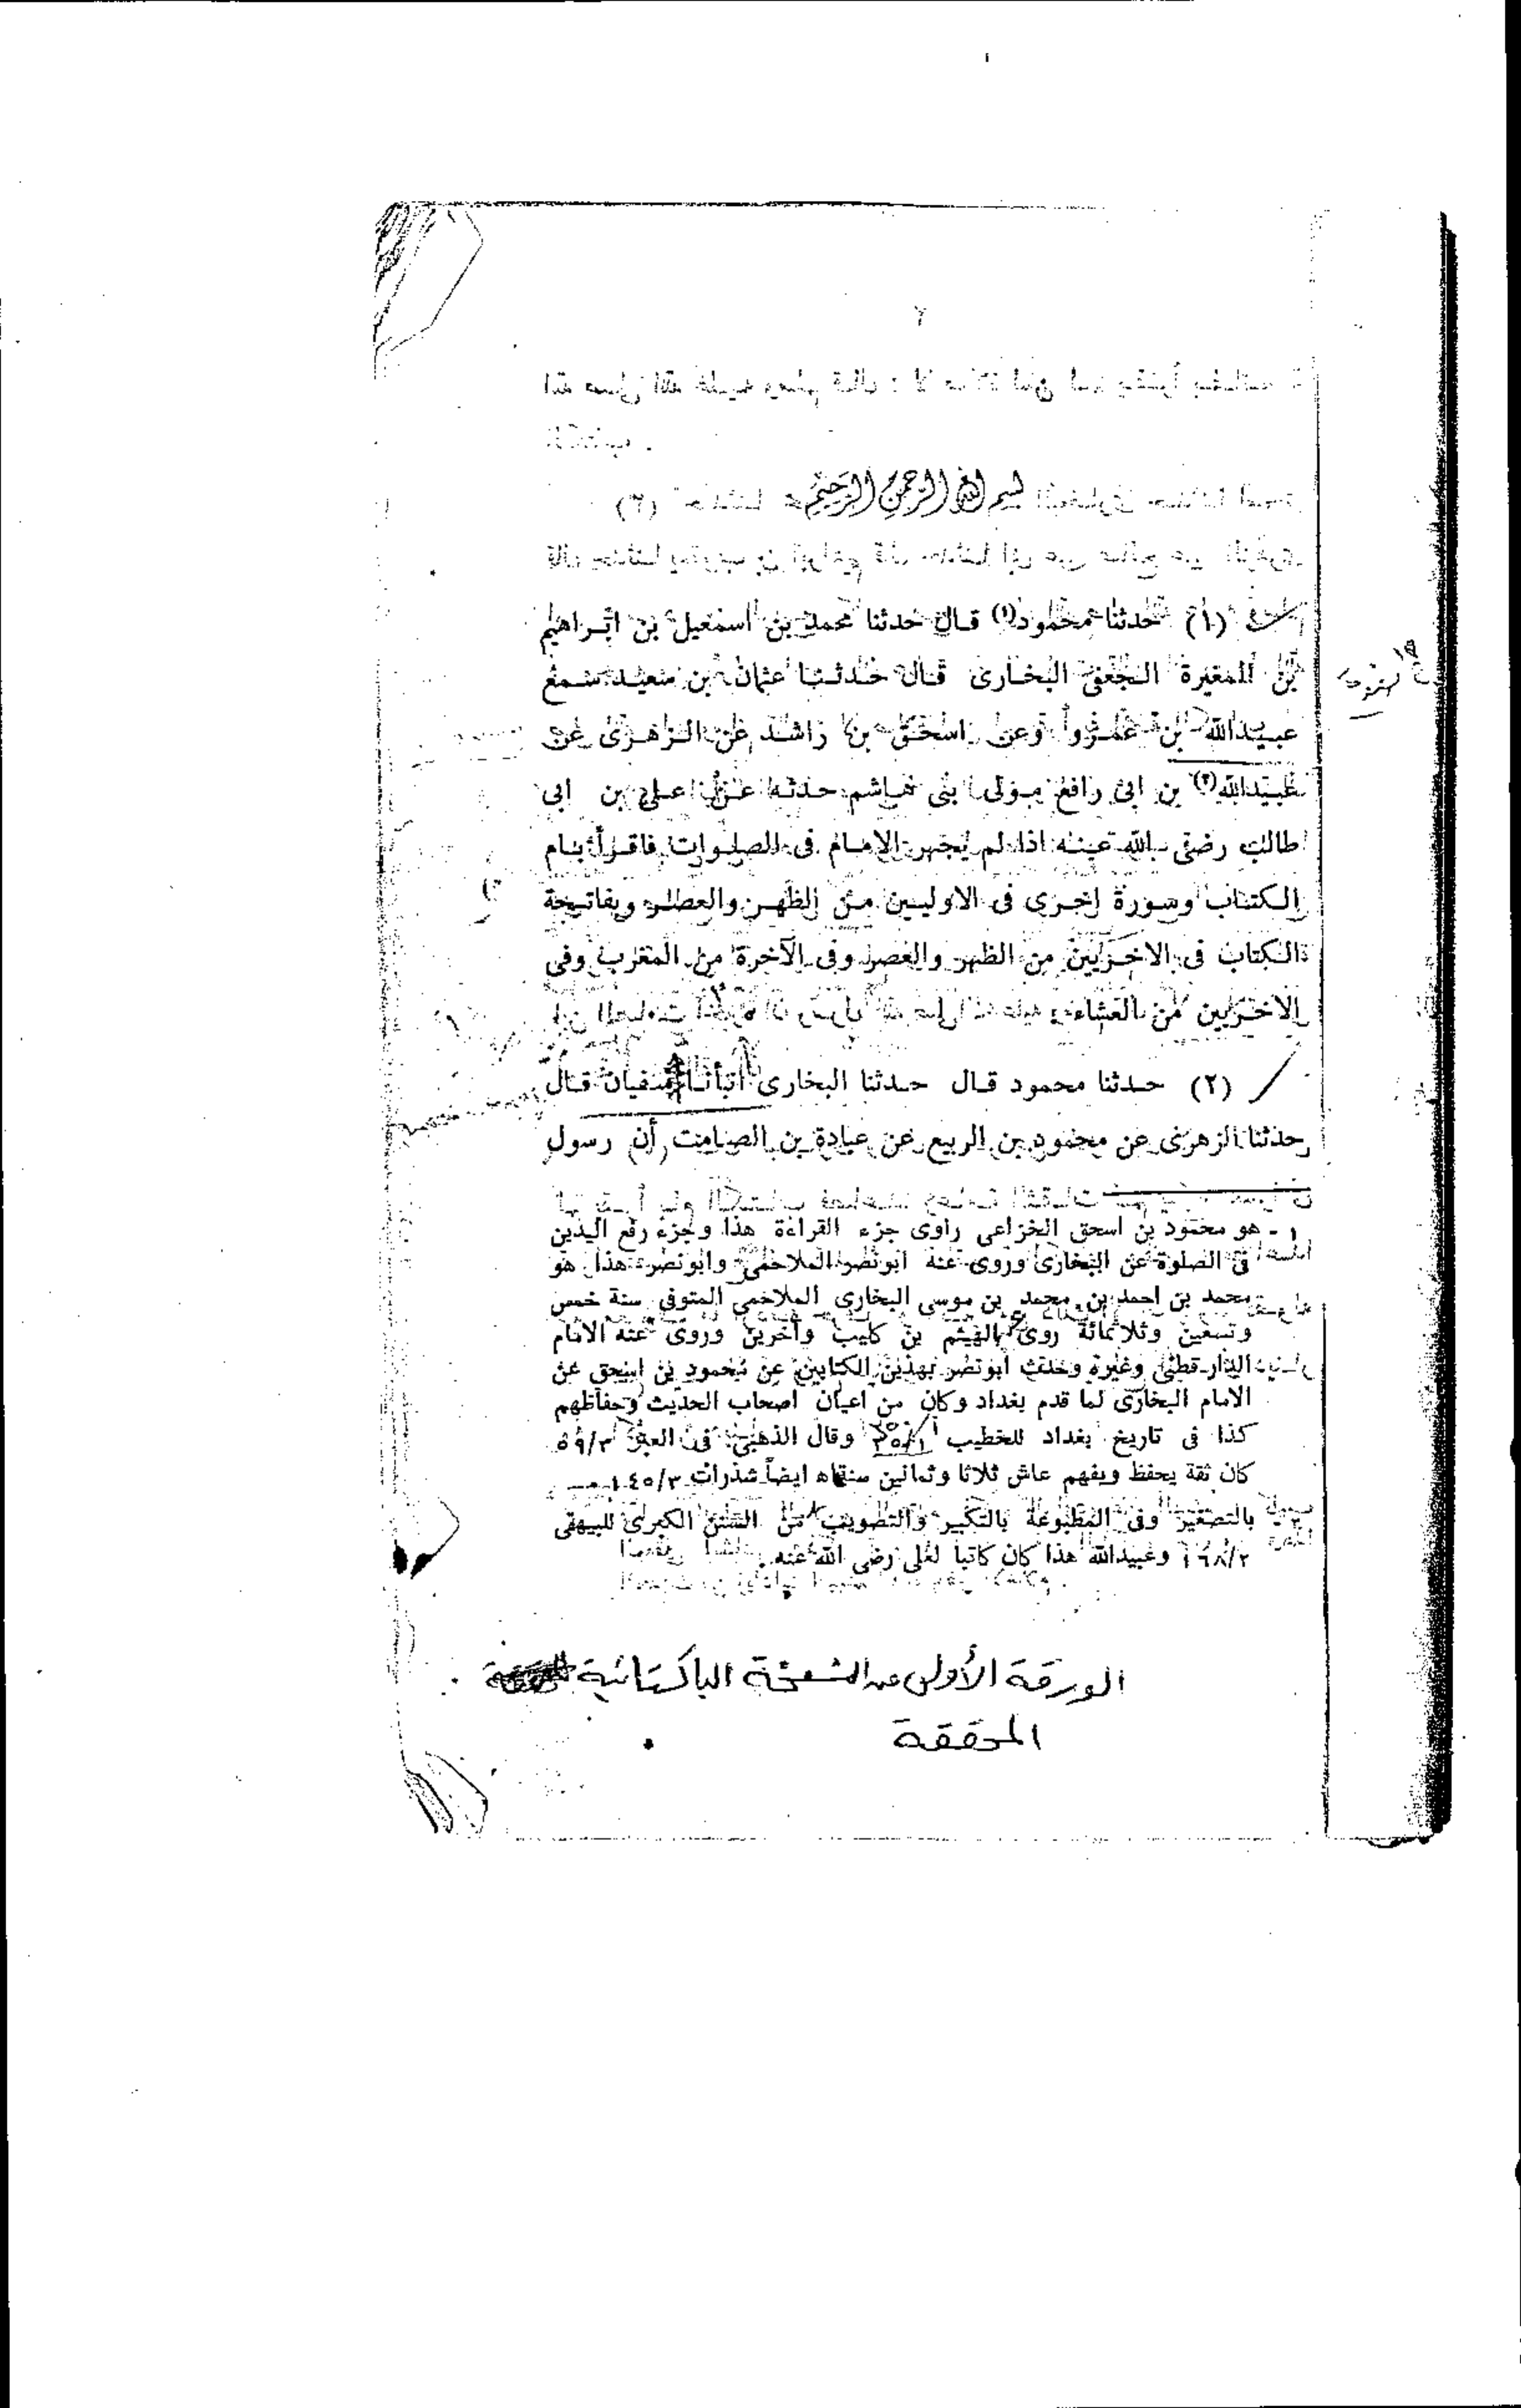 بسم الله الرحمن الرحيم
(١) حدثنا محمود(١) قال حدثنا محمد بن اسمعيل بن ابراهيم
بن المغيرة الجعفى البخارى قال حدثنا عثمان بن سعيد سمع
عبيدالله بن عمرو وعن اسحق بن راشد عن الزهرى عن
عبيدالله(٢) بن ابى رافع مولى بنى هاشم حدثه عن على بن ابى
طالب رضى الله عنه اذا لم يجهر الامام فى الصلوات فاقرأ بام
الكتاب وسورة اخرى فى الاوليين من الظهر والعصر وبفاتحة
الكتاب فى الاخريين من الظهر والعصر وفى الآخرة من المغرب وفى
الاخريين من العشاء
(٢) حدثنا محمود قال حدثنا البخارى انبأنا سفيان قال
حدثنا الزهرى عن محمود بن الربيع عن عبادة بن الصامت أن رسول
١ - هو محمود بن اسحق الخزاعى راوى جزء القراءة هذا وجزء رفع اليدين
فى الصلوة عن البخارى وروى عنه ابونصر الملاحمى وابونصر هذا هو
محمد بن احمد بن محمد بن موسى البخارى الملاحمى المتوفى سنة خمس
وتسعين وثلاثمائة روى الهيثم بن كليب وآخرين وروى عنه الامام
الدارقطنى وغيره وحدث ابونصر بهذين الكتابين عن محمود بن اسحق عن
الامام البخارى لما قدم بغداد وكان من اعيان اصحاب الحديث وحفاظهم
كذا فى تاريخ بغداد للخطيب وقال الذهبى فى العبر ٥٩/٣
كان ثقة يحفظ ويفهم عاش ثلاثا وثمانين سنة اه ايضاً شذرات ١٤٥/٣
بالتصغير وفى المطبوعة بالتكبير والتصويب من السنن الكبرى للبيهقى
١٦٨/٢ وعبيدالله هذا كان كاتبا لعلى رضى الله عنه
الورقة الأولى من النسخة الباكستانية
المحققة